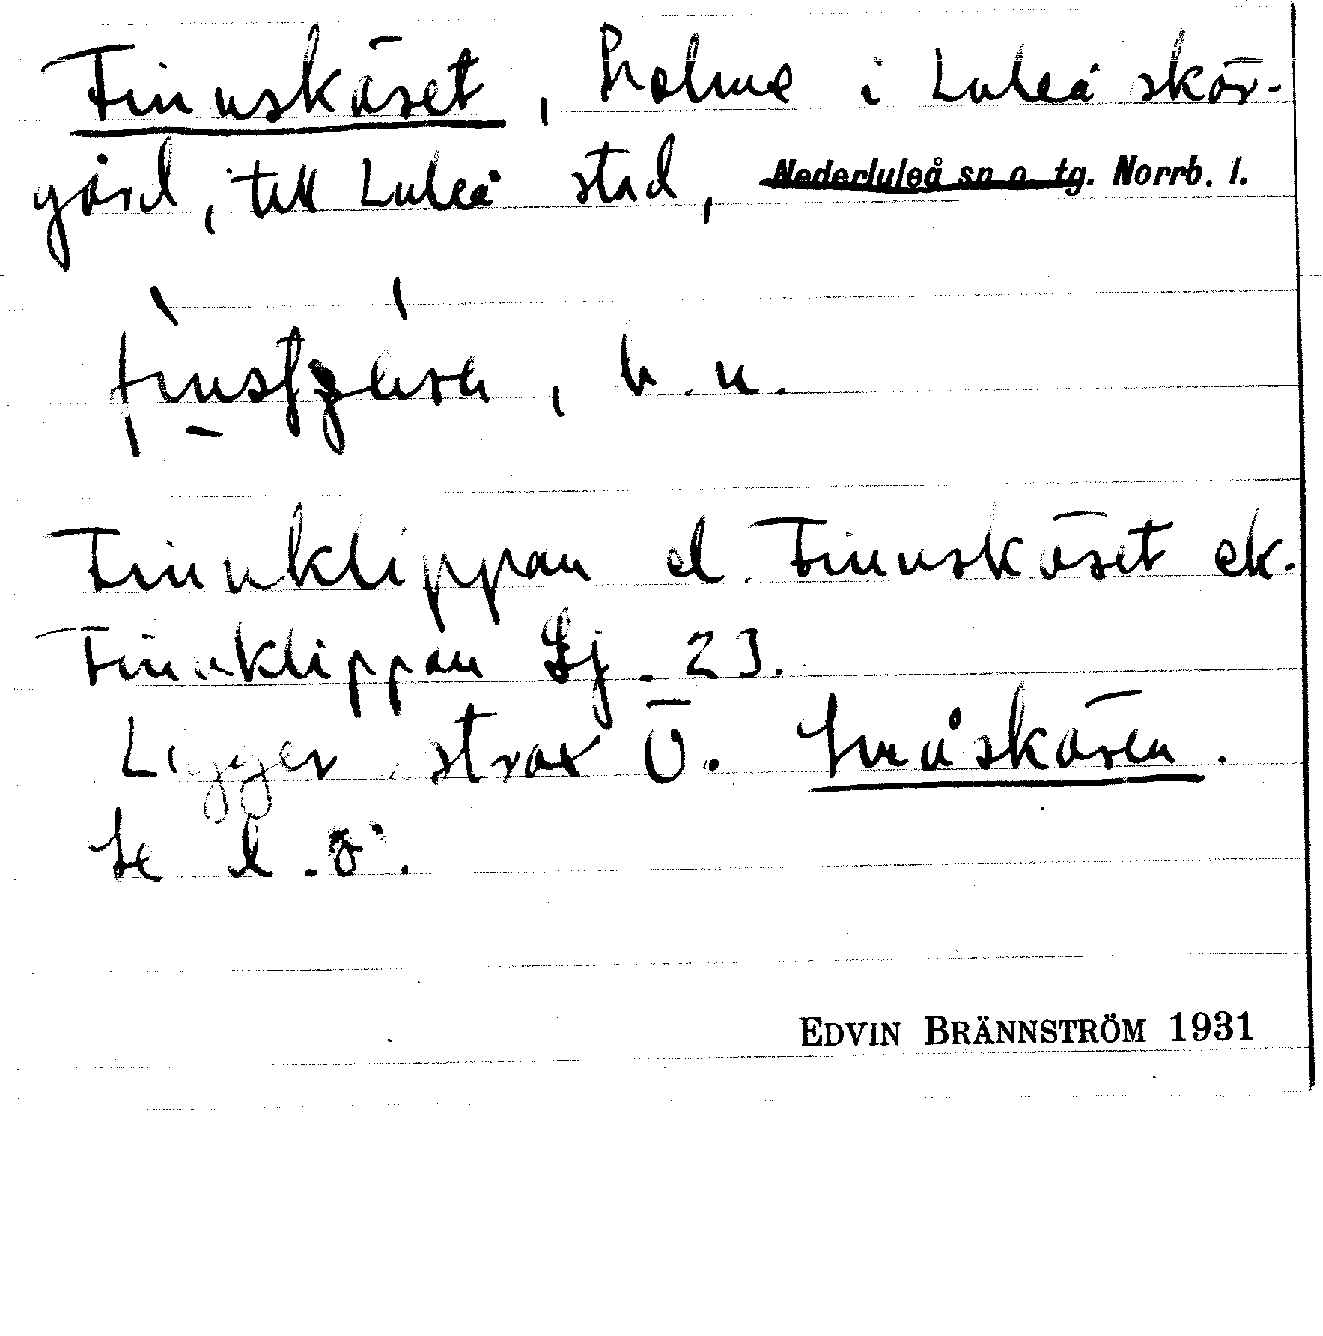 Finnskäret, holme i Luleå skär-
gård, till Luleå stad, Nederluleå sn o. tg. Norrb. l.
h. n.
Finnklippan el. Finnskäret ek.
Finnklippan Sj. 23.
Ligger strax Ö. Småskären.
Se d. o.
EDVIN BRÄNNSTRÖM 1931